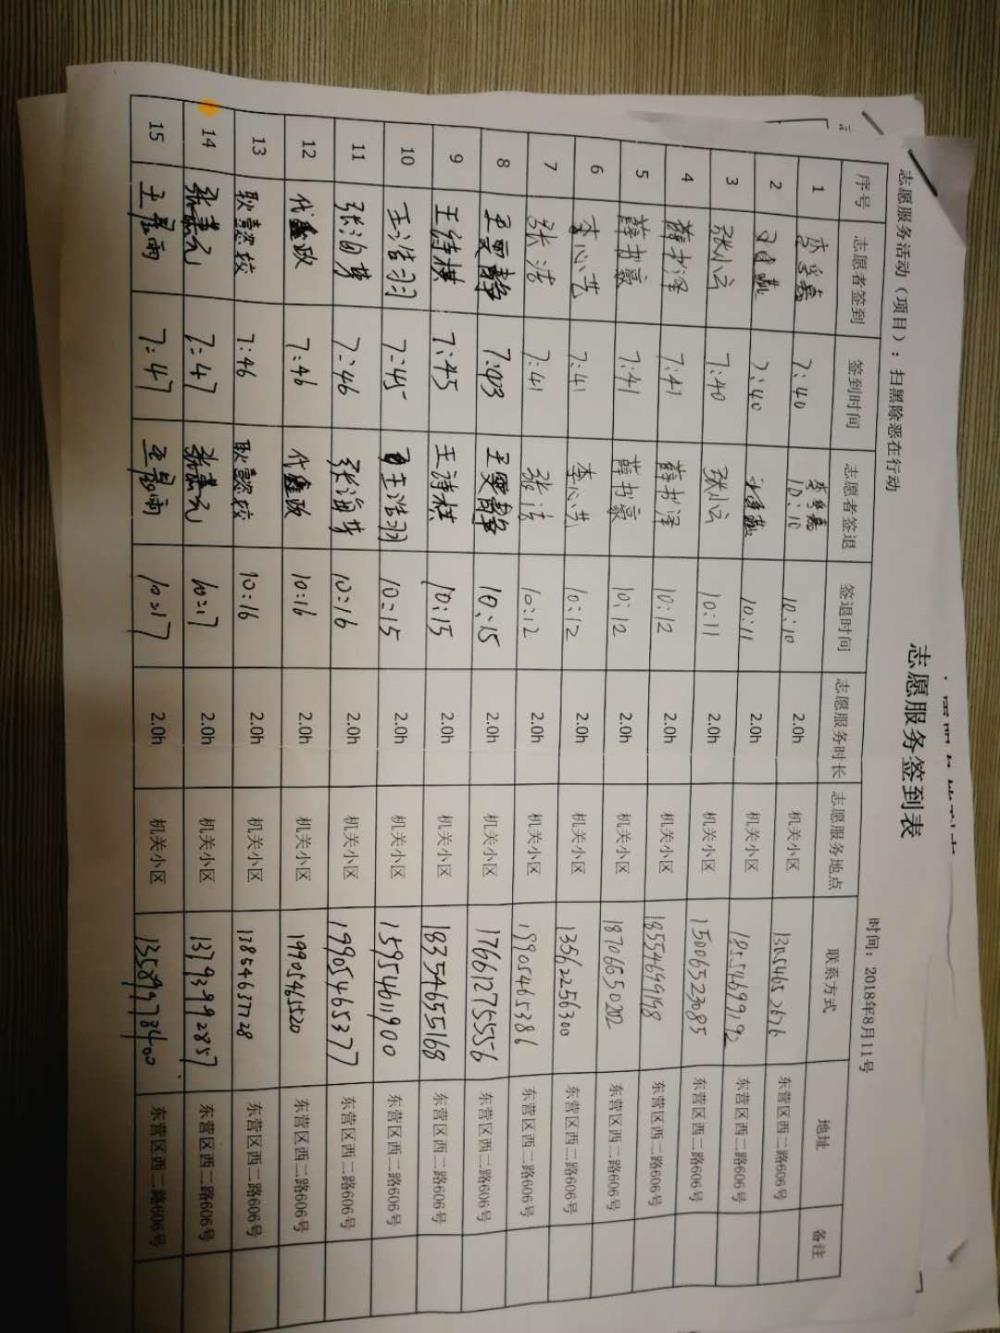 志愿服务签到表
志愿服务活动（项目）：扫黑除恶在行动 时间：2018年8月11号
序号 志愿者签到 签到时间 志愿者签退 签退时间 志愿服务时长 志愿服务地点 联系方式 地址 备注
1 7:40 10:10 10:10 2.0h 机关小区 东营区西二路606号
2 7:40 10:11 2.0h 机关小区 东营区西二路606号
3 张小云 7:40 张小云 10:11 2.0h 机关小区 15006523085 东营区西二路606号
4 薛书泽 7:41 薛书泽 10:12 2.0h 机关小区 18554699168 东营区西二路606号
5 薛书豪 7:41 薛书豪 10:12 2.0h 机关小区 18706650202 东营区西二路606号
6 李心艺 7:41 李心艺 10:12 2.0h 机关小区 13562256300 东营区西二路606号
7 张洁 7:41 张洁 10:12 2.0h 机关小区 19905465386 东营区西二路606号
8 7:43 10:15 2.0h 机关小区 17661275556 东营区西二路606号
9 王诗棋 7:45 王诗棋 10:15 2.0h 机关小区 18354655168 东营区西二路606号
10 王浩羽 7:45 王浩羽 10:15 2.0h 机关小区 15954611900 东营区西二路606号
11 张海梦 7:46 张海梦 10:16 2.0h 机关小区 19905465377 东营区西二路606号
12 代鑫政 7:46 代鑫政 10:16 2.0h 机关小区 19905465520 东营区西二路606号
13 耿懿姣 7:46 耿懿姣 10:16 2.0h 机关小区 13854637728 东营区西二路606号
14 7:47 10:17 2.0h 机关小区 13793992857 东营区西二路606号
15 7:47 10:17 2.0h 机关小区 13589978400 东营区西二路606号